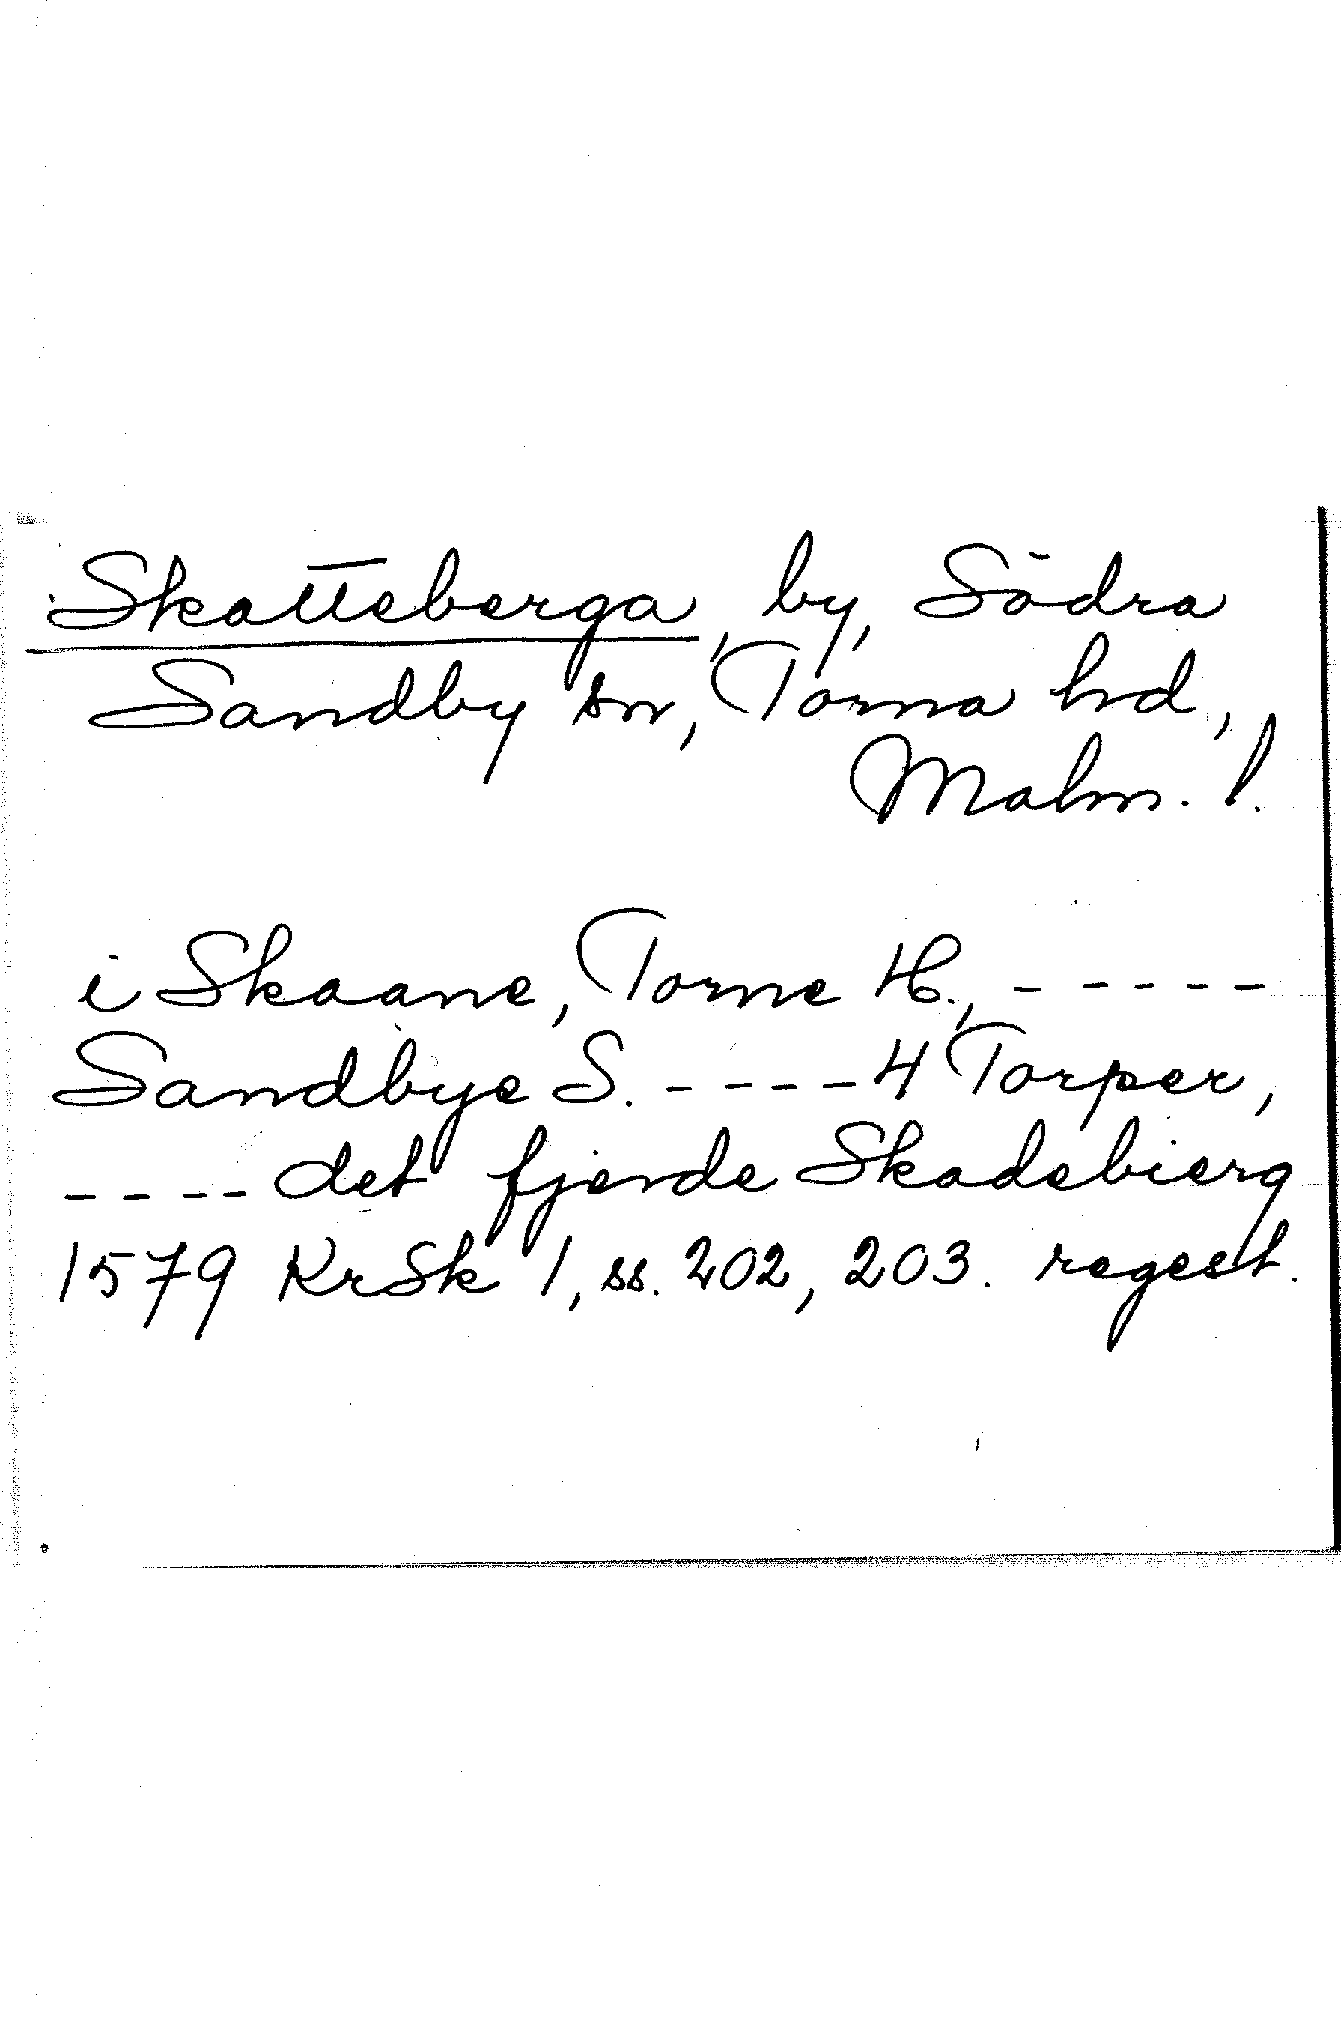 Skatteberga, by, Södra
Sandby sn, Torna hd,
Malm. l.
i Skaane, Torne H., - - - - -
Sandbye S. - - - - 4 Torper,
- - - - det fjerde Skadebierg
1579 KrSk 1, ss. 202, 203. regest.